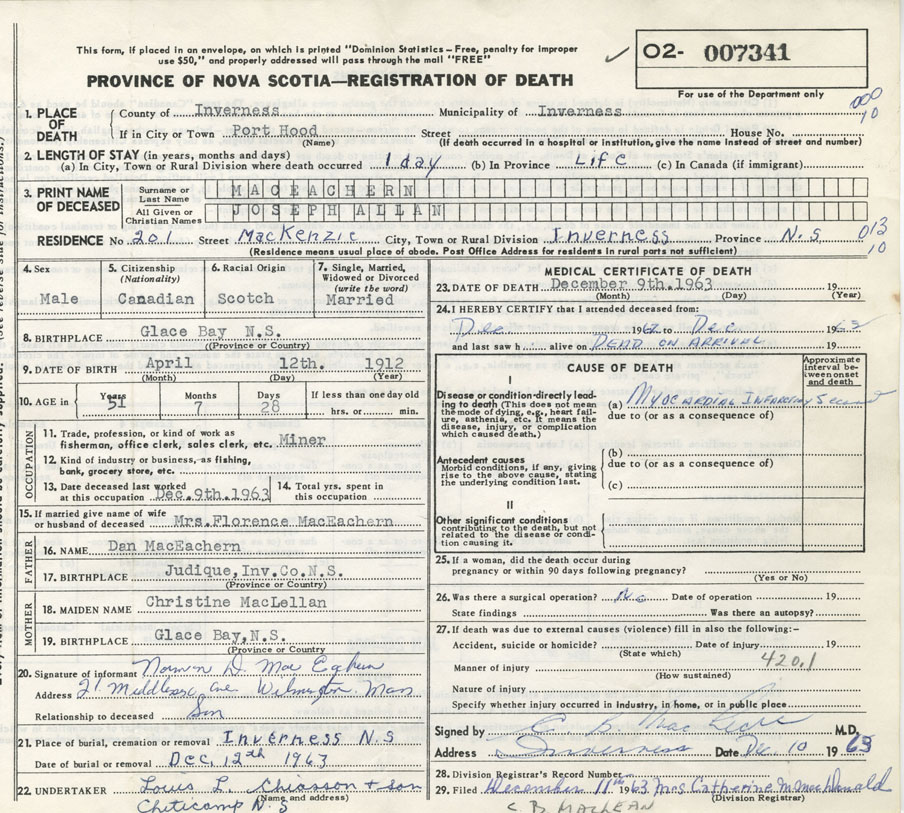 This form, if placed in an envelope, on which is printed "Dominion Statistics – Free, penalty for improper
use $50," and properly addressed will pass through the mail "FREE"
✓ O2- 007341
For use of the Department only
PROVINCE OF NOVA SCOTIA—REGISTRATION OF DEATH
000
10
1. PLACE OF DEATH
County of Inverness Municipality of Inverness
If in City or Town Port Hood Street House No.
(Name) (If death occurred in a hospital or institution, give the name instead of street and number)
2. LENGTH OF STAY (in years, months and days)
(a) In City, Town or Rural Division where death occurred 1 day (b) In Province Life (c) In Canada (if immigrant)
3. PRINT NAME OF DECEASED
Surname or Last Name MACEACHERN
All Given or Christian Names JOSEPH ALLAN
RESIDENCE No 201 Street MacKenzie City, Town or Rural Division Inverness Province N.S 013
(Residence means usual place of abode. Post Office Address for residents in rural parts not sufficient) 10
4. Sex Male
5. Citizenship (Nationality) Canadian
6. Racial Origin Scotch
7. Single, Married, Widowed or Divorced (write the word) Married
8. BIRTHPLACE Glace Bay N.S.
(Province or Country)
9. DATE OF BIRTH April 12th. 1912
(Month) (Day) (Year)
10. AGE in Years 51 Months 7 Days 28 If less than one day old hrs. or min.
OCCUPATION
11. Trade, profession, or kind of work as
fisherman, office clerk, sales clerk, etc. Miner
12. Kind of industry or business, as fishing,
bank, grocery store, etc.
13. Date deceased last worked
at this occupation Dec.9th.1963
14. Total yrs. spent in
this occupation
15. If married give name of wife
or husband of deceased Mrs.Florence MacEachern
FATHER
16. NAME Dan MacEachern
17. BIRTHPLACE Judique,Inv.Co.N.S.
(Province or Country)
MOTHER
18. MAIDEN NAME Christine MacLellan
19. BIRTHPLACE Glace Bay,N.S.
(Province or Country)
20. Signature of informant Norman D. Mac
Address 21 Ave Wilmington. Mass
Relationship to deceased Son
21. Place of burial, cremation or removal Inverness N S
Date of burial or removal Dec. 12th 1963
22. UNDERTAKER Louis L. Chiasson + son
(Name and address)
Cheticamp N.S
MEDICAL CERTIFICATE OF DEATH
23. DATE OF DEATH December 9th.1963 19
(Month) (Day) (Year)
24. I HEREBY CERTIFY that I attended deceased from:
Dec 1962 to Dec 1963
and last saw h alive on DEAD ON ARRIVAL 19
CAUSE OF DEATH
Approximate interval between onset and death
I
Disease or condition directly leading to death (This does not mean
the mode of dying, e.g., heart failure, asthenia, etc. It means the
disease, injury, or complication
which caused death.)
(a) Myocardial Infarction
due to (or as a consequence of)
Antecedent causes
Morbid conditions, if any, giving
rise to the above cause, stating
the underlying condition last.
(b)
due to (or as a consequence of)
(c)
II
Other significant conditions
contributing to the death, but not
related to the disease or condition causing it.
25. If a woman, did the death occur during
pregnancy or within 90 days following pregnancy?
(Yes or No)
26. Was there a surgical operation? No Date of operation 19
State findings Was there an autopsy?
27. If death was due to external causes (violence) fill in also the following:–
Accident, suicide or homicide? Date of injury 19
(State which) 420.1
Manner of injury
(How sustained)
Nature of injury
Specify whether injury occurred in Industry, in home, or in public place
Signed by C B. MacLean M.D.
Address Inverness Date Dec 10 19 63
28. Division Registrar's Record Number
29. Filed December 11th 1963 Mrs Catherine M MacDonald
(Division Registrar)
C. B. MACLEAN